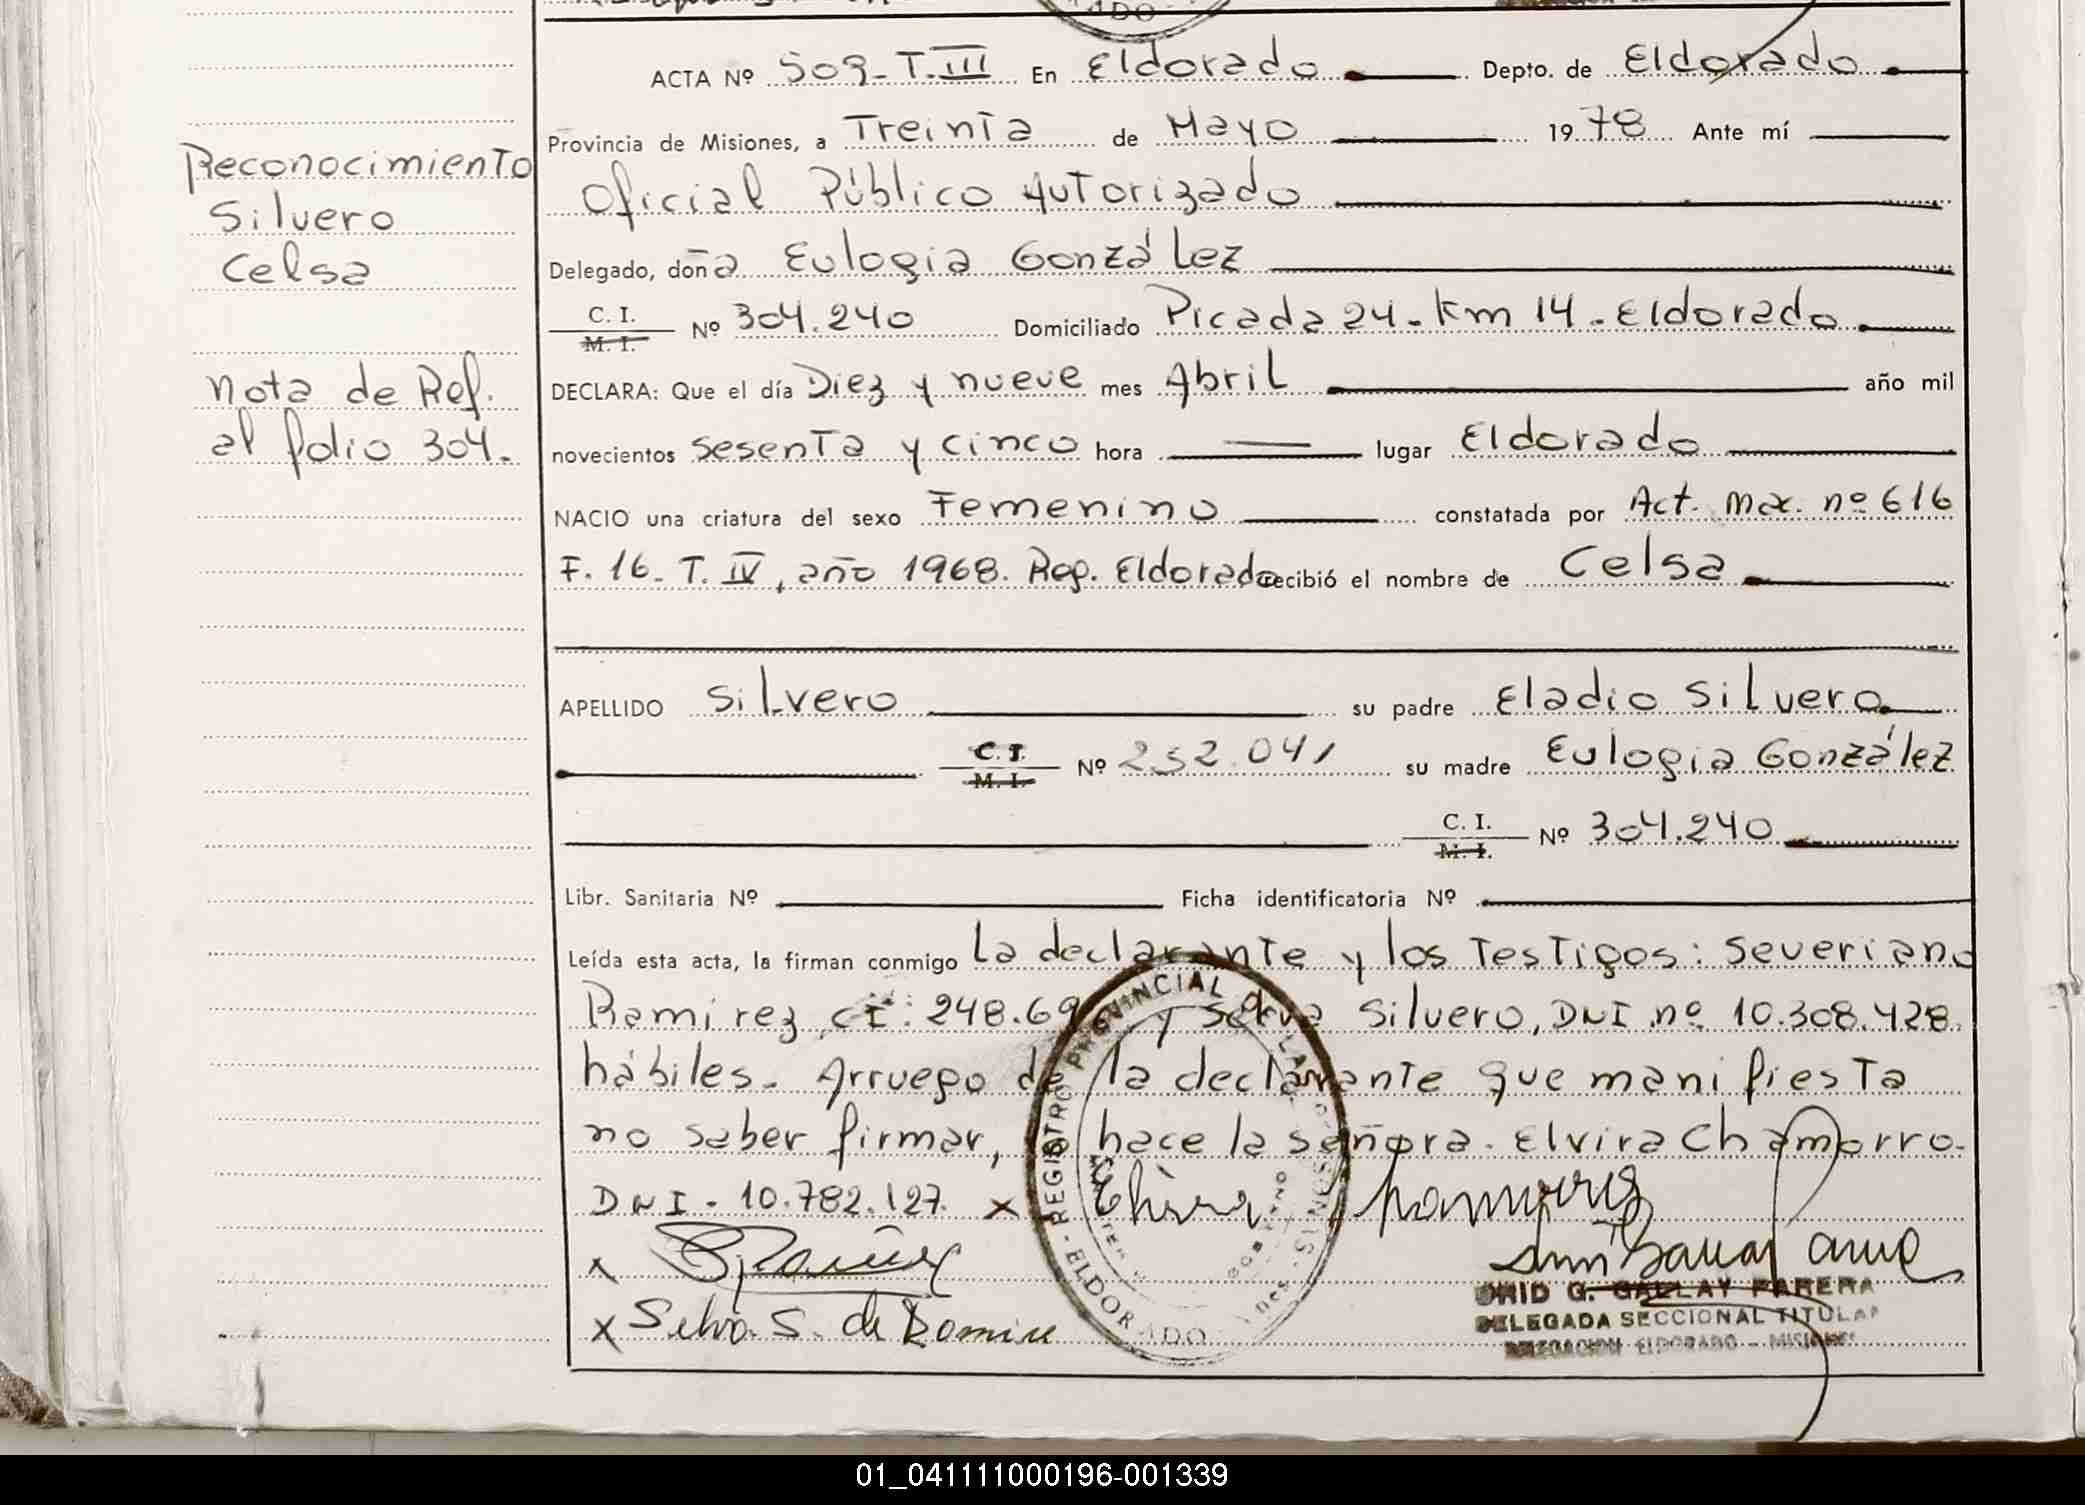 ACTA Nº 509-T.III En Eldorado Depto. de Eldorado
Provincia de Misiones, a Treinta de Mayo 1978 Ante mí
Reconocimiento
Oficial Público Autorizado
Silvero
Delegado, doña Eulogia González
Celsa
C. I.
M. I.
Nº 304.240 Domiciliado Picada 24. Km 14. Eldorado
DECLARA: Que el día Diez y nueve mes Abril año mil
Nota de Ref.
novecientos sesenta y cinco hora lugar Eldorado
al folio 304.
NACIO una criatura del sexo Femenino constatada por Act. Mx. nº 616
F. 16. T. IV, año 1968. Reg. Eldorado recibió el nombre de Celsa
APELLIDO Silvero su padre Eladio Silvero
C. I.
M. I.
Nº 252.041 su madre Eulogia González
C. I.
M. I.
Nº 304.240
Libr. Sanitaria Nº Ficha identificatoria Nº
Leída esta acta, la firman conmigo La declarante y los Testigos: Severiano
Ramirez, CI: 248.69 y Selva Silvero, DNI nº 10.308.428
hábiles. Arruego de la declarante que manifiesta
no saber firmar, lo hace la señora. Elvira Chamorro.
DNI - 10.782.127. x
x
x Selva S. de Ramire
REGISTRO PROVINCIAL DE LAS PERSONAS
ELDORADO
GOBIERNO
G. GALLAY PARERA
DELEGADA SECCIONAL TITULAR
DELEGACION ELDORADO - MISIONES
01_041111000196-001339